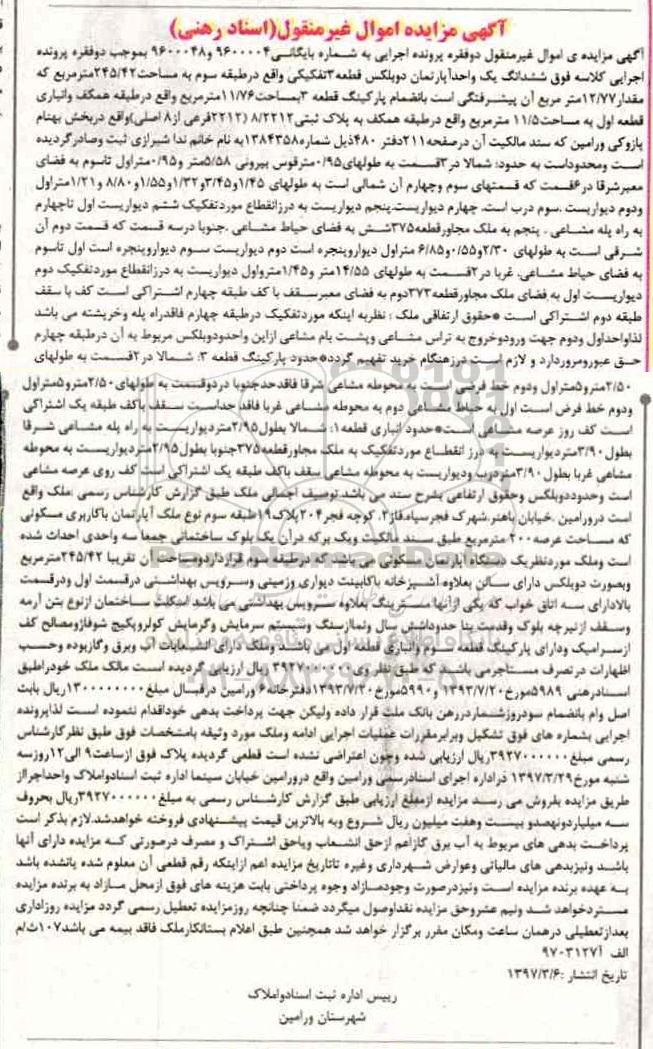 آگهی مزایده اموال غیرمنقول(اسناد رهنی)
آگهی مزایده ی اموال غیرمنقول دوفقره پرونده اجرایی به شماره بایگانی۹۶۰۰۰۰۴ و۹۶۰۰۰۴۸ بموجب دوفقره پرونده
اجرایی کلاسه فوق ششدانگ یک واحدآپارتمان دوبلکس قطعه۳تفکیکی واقع درطبقه سوم به مساحت۲۴۵/۴۲مترمربع که
مقدار۱۲/۷۷متر مربع آن پیشرفتگی است بانضمام پارکینگ قطعه ۳بمساحت۱۱/۷۶مترمربع واقع درطبقه همکف وانباری
قطعه اول به مساحت۱۱/۵ مترمربع واقع درطبقه همکف به پلاک ثبتی۸/۲۲۱۲ (۲۲۱۲فرعی از۸ اصلی)واقع دربخش بهنام
پازوکی ورامین که سند مالکیت آن درصفحه۲۱۱دفتر ۴۸۰ذیل شماره۱۳۸۴۳۵۸به نام خانم ندا شیرازی ثبت وصادرگردیده
است ومحدوداست به حدود: شمالا در۳قسمت به طولهای۰/۹۵مترقوس بیرونی ۵/۵۸متر و۰/۹۵متراول تاسوم به فضای
معبرشرقا در۶قسمت که قسمتهای سوم وچهارم آن شمالی است به طولهای ۱/۴۵و۳/۴۵و۱/۳۲و۱/۵۵و۸/۸۰ و۱/۲۱متراول
ودوم دیواریست .سوم درب است. چهارم دیواریست.پنجم دیواریست به درزانقطاع موردتفکیک ششم دیواریست اول تاچهارم
به راه پله مشاعی . پنجم به ملک مجاورقطعه۳۷۵شش به فضای حیاط مشاعی .جنوبا درسه قسمت که قسمت دوم آن
شرقی است به طولهای ۲/۳۰و۰/۵۵و۶/۸۵ متراول دیواروپنجره است دوم دیواریست سوم دیواروپنجره است اول تاسوم
به فضای حیاط مشاعی. غربا در۲قسمت به طولهای ۱۴/۵۵متر و۱/۴۵مترواول دیواریست به درزانقطاع موردتفکیک دوم
دیواریست اول به فضای ملک مجاورقطعه۳۷۳دوم به فضای معبرسقف با کف طبقه چهارم اشتراکی است کف با سقف
طبقه دوم اشتراکی است *حقوق ارتفاقی ملک : نظربه اینکه موردتفکیک درطبقه چهارم فاقدراه پله وخرپشته می باشد
لذاواحداول ودوم جهت ورودوخروج به تراس مشاعی وپشت بام مشاعی ازاین واحددوبلکس مربوط به آن درطبقه چهارم
حق عبورومروردارد و لازم است درهنگام خرید تفهیم گردد*حدود پارکینگ قطعه ۳: شمالا در۲قسمت به طولهای
۲/۵۰مترو۵متراول ودوم خط فرضی است به محوطه مشاعی شرقا فاقدحدجنوبا دردوقسمت به طولهای۲/۵۰مترو۵متراول
ودوم خط فرض است اول به حیاط مشاعی دوم به محوطه مشاعی غربا فاقد حداست سقف باکف طبقه یک اشتراکی
است کف روز عرصه مشاعی است*حدود انباری قطعه۱: شمالا بطول۲/۹۵متردیواریست به راه پله مشاعی شرقا
بطول۳/۹۰متردیواریست به درز انقطاع موردتفکیک به ملک مجاورقطعه۳۷۵جنوبا بطول۲/۹۵متردیواریست به محوطه
مشاعی غربا بطول۳/۹۰متردرب ودیواریست به محوطه مشاعی سقف باکف طبقه یک اشتراکی است کف روی عرصه مشاعی
است وحدوددوبلکس وحقوق ارتفاعی بشرح سند می باشد.توصیف اجمالی ملک طبق گزارش کارشناس رسمی :ملک واقع
است درورامین .خیابان باهنر.شهرک فجرسپاه.فاز۲. کوچه فجر۲۰۴پلاک۱۹طبقه سوم نوع ملک آپارتمان باکاربری مسکونی
که مساحت عرصه۲۰۰مترمربع طبق سند مالکیت ویک برکه درآن یک بلوک ساختمانی جمعا سه واحدی احداث شده
است وملک موردنظریک دستگاه آپارتمان مسکونی می باشد که درطبقه سوم قراردارد ومساحت آن تقریبا ۲۴۵/۴۲مترمربع
وبصورت دوبلکس دارای سالن بعلاوه آشپزخانه باکابینت دیواری وزمینی وسرویس بهداشتی درقسمت اول ودرقسمت
بالادارای سه اتاق خواب که یکی ازآنها مسترینگ بعلاوه سرویس بهداشتی می باشد اسکلت ساختمان ازنوع بتن آرمه
وسقف ازتیرچه بلوک وقدمت بنا حدودآشش سال ونماازسنگ وسیستم سرمایش وگرمایش کولروپکیج شوفاژومصالح کف
ازسرامیک ودارای پارکینگ قطعه سوم وانباری قطعه اول می باشد وملک دارای انشعابات آب وبرق وگازبوده وحسب
اظهارات درتصرف مستاجرمی باشد که طبق نظر وی۳۹۲۷۰۰۰۰۰۰ ریال ارزیابی گردیده است مالک ملک خودراطبق
اسنادرهنی ۵۹۸۹مورخ۱۳۹۳/۷/۲۰ و۵۹۹۰مورخ۱۳۹۳/۷/۲۰دفترخانه۶ ورامین درقبال مبلغ۱۳۰۰۰۰۰۰۰۰ریال بابت
اصل وام بانضمام سودروزشماردررهن بانک ملت قرار داده ولیکن جهت پرداخت بدهی خوداقدام ننموده است لذاپرونده
اجرایی بشماره های فوق تشکیل وبرابرمقررات عملیات اجرایی ادامه وملک مورد وثیقه بامشخصات فوق طبق نظرکارشناس
رسمی مبلغ۳۹۲۷۰۰۰۰۰۰ریال ارزیابی شده وچون اعتراضی نشده است قطعی گردیده پلاک فوق ازساعت۹ الی۱۲روزسه
شنبه مورخ۱۳۹۷/۳/۲۹ دراداره اجرای اسنادرسمی ورامین واقع درورامین خیابان سینما اداره ثبت اسنادواملاک واحداجراز
طریق مزایده بفروش می رسد مزایده ازمبلغ ارزیابی طبق گزارش کارشناس رسمی به مبلغ۳۹۲۷۰۰۰۰۰۰ریال بحروف
سه میلیاردونهصدو بیست وهفت میلیون ریال شروع وبه بالاترین قیمت پیشنهادی فروخته خواهدشد.لازم بذکر است
پرداخت بدهی های مربوط به آب برق گازاعم ازحق انشعاب ویاحق اشتراک و مصرف درصورتی که مزایده دارای آنها
باشد ونیزبدهی های مالیاتی وعوارض شهرداری وغیره تاتاریخ مزایده اعم ازاینکه رقم قطعی آن معلوم شده یانشده باشد
به عهده برنده مزایده است ونیزدرصورت وجودمازاد وجوه پرداختی بابت هزینه های فوق ازمحل مازاد به برنده مزایده
مستردخواهد شد ونیم عشروحق مزایده نقداوصول میگردد ضمنا چنانچه روزمزایده تعطیل رسمی گردد مزایده روزاداری
بعدازتعطیلی درهمان ساعت ومکان مقرر برگزار خواهد شد همچنین طبق اعلام بستانکارملک فاقد بیمه می باشد۱۰۷ث/م
الف آ۹۷۰۳۱۲۷
تاریخ انتشار :۱۳۹۷/۳/۶
رییس اداره ثبت اسنادواملاک
شهرستان ورامین